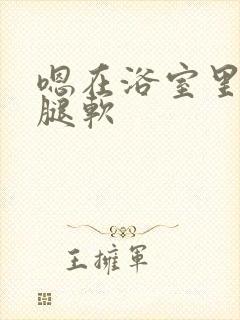 嗯在浴室里
腿軟
王擁軍